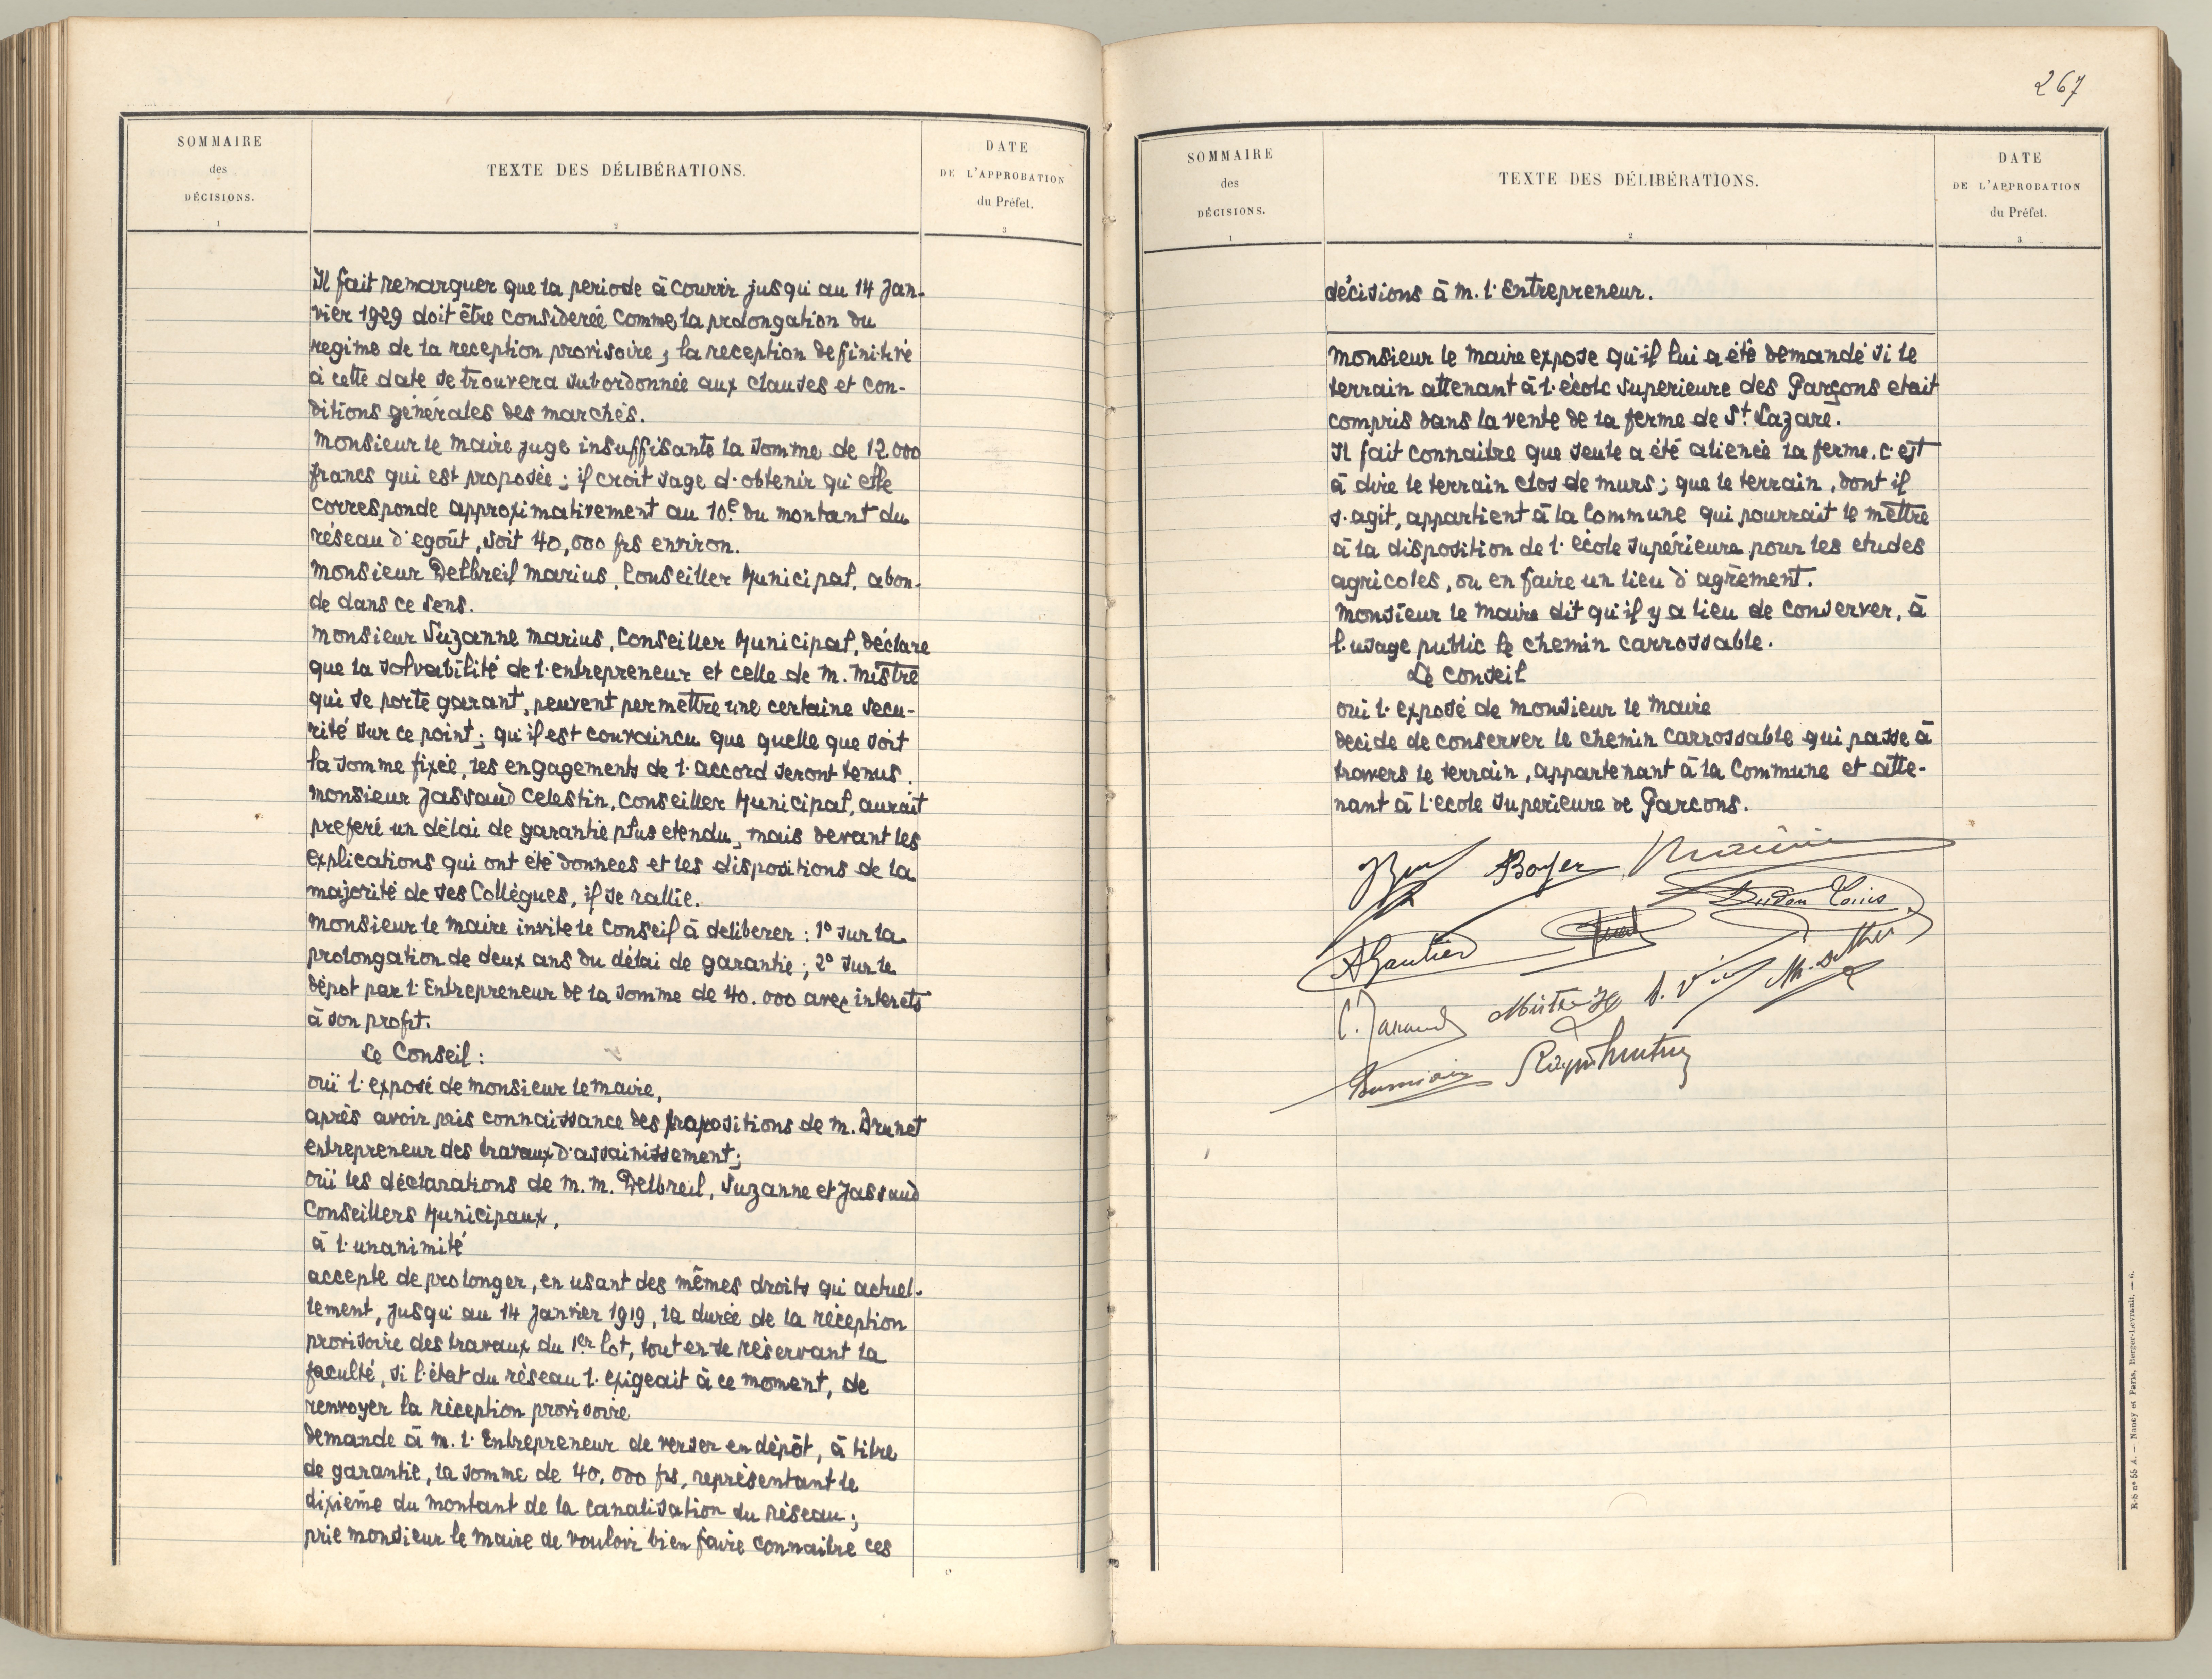 SOMMAIRE
des
DÉCISIONS.
1
TEXTE DES DÉLIBÉRATIONS.
2
DATE
DE L'APPROBATION
du Préfet.
3
Il fait remarquer que la periode à courrir jusqu'au 14 Jan-
vier 1929 doit être considereé comme la prolongation du
regime de la reception provisoire ; la reception definitive
à cette date se trouvera subordonnée aux clauses et con-
ditions générales des marchés.
Monsieur le Maire juge insuffisante la somme de 12.000
francs qui est proposée ; il croit sage d'obtenir qu'elle
corresponde approximativement au 10e du montant du
réseau d'egoût, soit 40,000 frs environ.
Monsieur Delbreil Marius, Conseiller Municipal, abon-
de dans ce sens.
Monsieur Suzanne Marius, Conseiller Municipal, déclare
que la solvabilité de l'entrepreneur et celle de M. Mistre
qui se porte garant, peuvent permettre une certaine secu-
rité sur ce point ; qu'il est convaincu que quelle que soit
la somme fixée, les engagements de l'accord seront tenus.
Monsieur Jassaud Celestin, Conseiller Municipal, aurait
preferé un délai de garantie plus etendu, mais devant les
explications qui ont été données et les dispositions de la
majorité de ses Collègues, il se rallie.
Monsieur le Maire invite le Conseil à deliberer : 1° sur la
prolongation de deux ans du délai de garantie ; 2° sur le
dépot par l'Entrepreneur de la somme de 40.000 avec interets
à son profit.
Le Conseil :
ouï l'exposé de Monsieur le Maire,
après avoir pris connaissance des propositions de M. Brunet
entrepreneur des travaux d'assainissement ;
ouï les déclarations de M. M. Delbreil, Suzanne et Jassaud
Conseillers Municipaux,
à l'unanimité
accepte de prolonger, en usant des mêmes droits qu'actuel-
lement, jusqu'au 14 Janvier 1919, la durée de la réception
provisoire des travaux du 1er lot, tout en se réservant la
faculté, si l'état du réseau l'exigeait à ce moment, de
renvoyer la réception provisoire
demande à M. l'Entrepreneur de verser en dépôt, à titre
de garantie, la somme de 40,000 frs, représentant le
dixième du montant de la canalisation du réseau ;
prie Monsieur le Maire de vouloir bien faire connaitre ces
267
SOMMAIRE
des
DÉCISIONS.
1
TEXTE DES DÉLIBÉRATIONS.
2
DATE
DE L'APPROBATION
du Préfet.
3
décisions à M. l'Entrepreneur.
Monsieur le Maire expose qu'il lui a été demandé si le
terrain attenant à l'école superieure des Garçons etait
compris dans la vente de la ferme de St. Lazare.
Il fait connaitre que seule a été alienée la ferme, c'est
à dire le terrain clos de murs ; que le terrain, dont il
s'agit, appartient à la Commune qui pourrait le mettre
à la disposition de l'école supérieure pour les etudes
agricoles, ou en faire un lieu d'agrèment.
Monsieur le Maire dit qu'il y a lieu de conserver, à
l'usage public le chemin carrossable.
Le Conseil
ouï l'exposé de Monsieur le Maire
decide de conserver le chemin carrossable qui passe à
travers le terrain, appartenant à la Commune et atte-
nant à l'ecole superieure de Garcons.
Boyer
Louis
AGautier
C. Jassaud
R-S nº 55 A. — Nancy et Paris, Berger-Levrault. — 6.